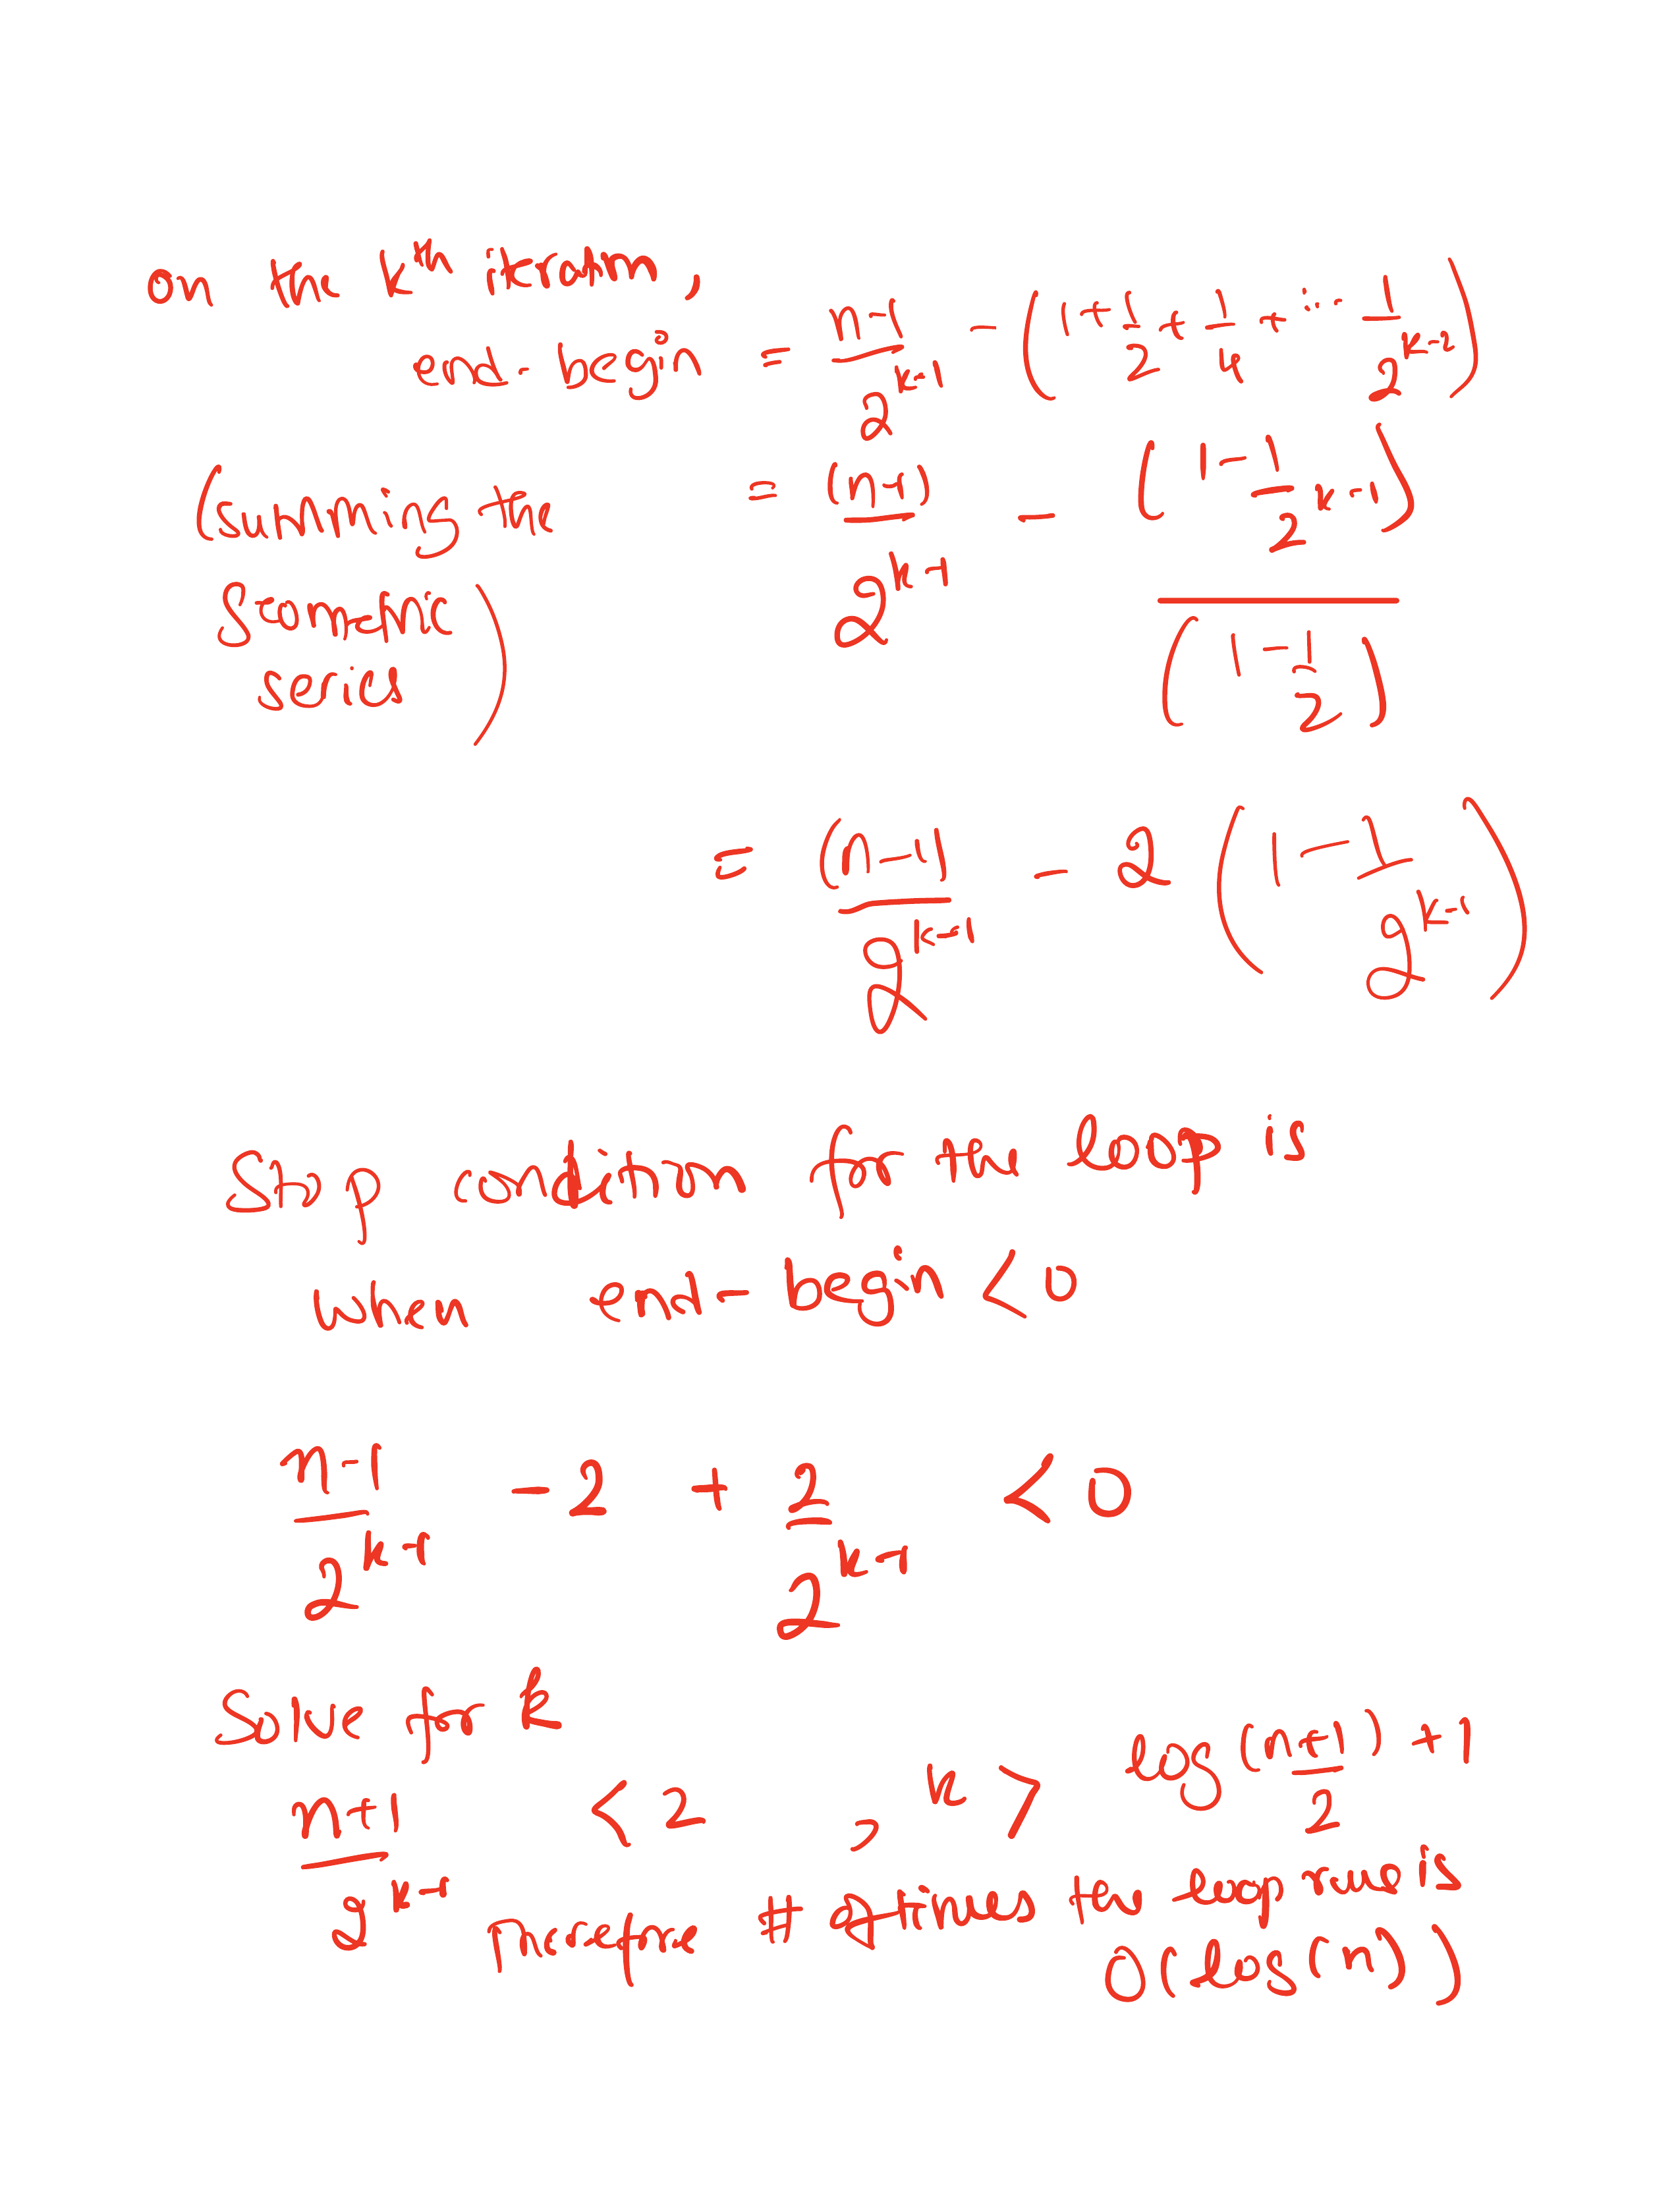 on the kth iteration,
end - begin = n-1/2^(k-1) - (1 + 1/2 + 1/4 + ... 1/2^(k-2))
(summing the geometric series) = (n-1)/2^(k-1) - (1 - 1/2^(k-1))/(1 - 1/2)
= (n-1)/2^(k-1) - 2 (1 - 1/2^(k-1))
Stop condition for the loop is
when end - begin < 0
n-1/2^(k-1) - 2 + 2/2^(k-1) < 0
Solve for k
n+1/2^(k-1) < 2 , k > log (n+1/2) + 1
Therefore # of times the loop runs is
O(log(n))